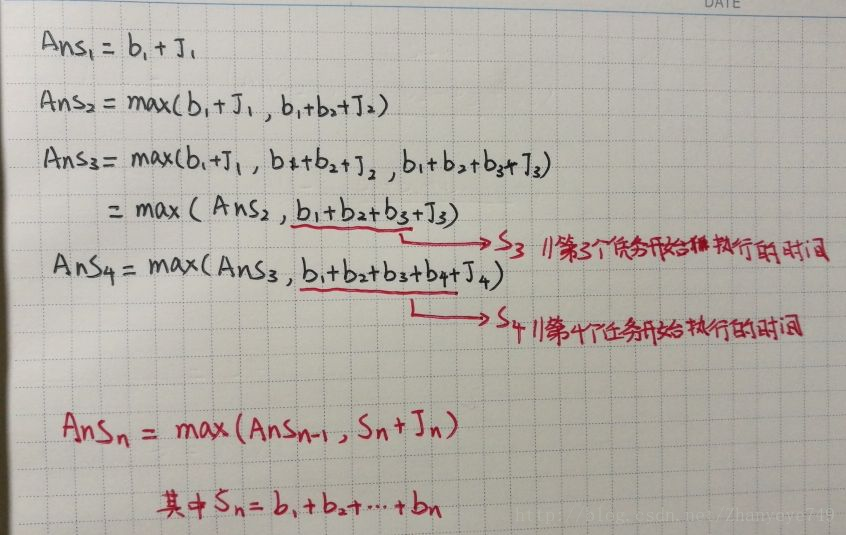 DATE
Ans₁ = b₁ + J₁
Ans₂ = max(b₁+J₁ , b₁+b₂+J₂)
Ans₃ = max(b₁+J₁ , b₁+b₂+J₂ , b₁+b₂+b₃+J₃)
= max ( Ans₂ , b₁+b₂+b₃+J₃)
S₃ //第3个任务开始执行的时间
Ans₄ = max(Ans₃ , b₁+b₂+b₃+b₄+J₄)
S₄ //第4个任务开始执行的时间
Ansₙ = max(Ansₙ₋₁ , Sₙ+Jₙ)
其中 Sₙ = b₁+b₂+…+bₙ